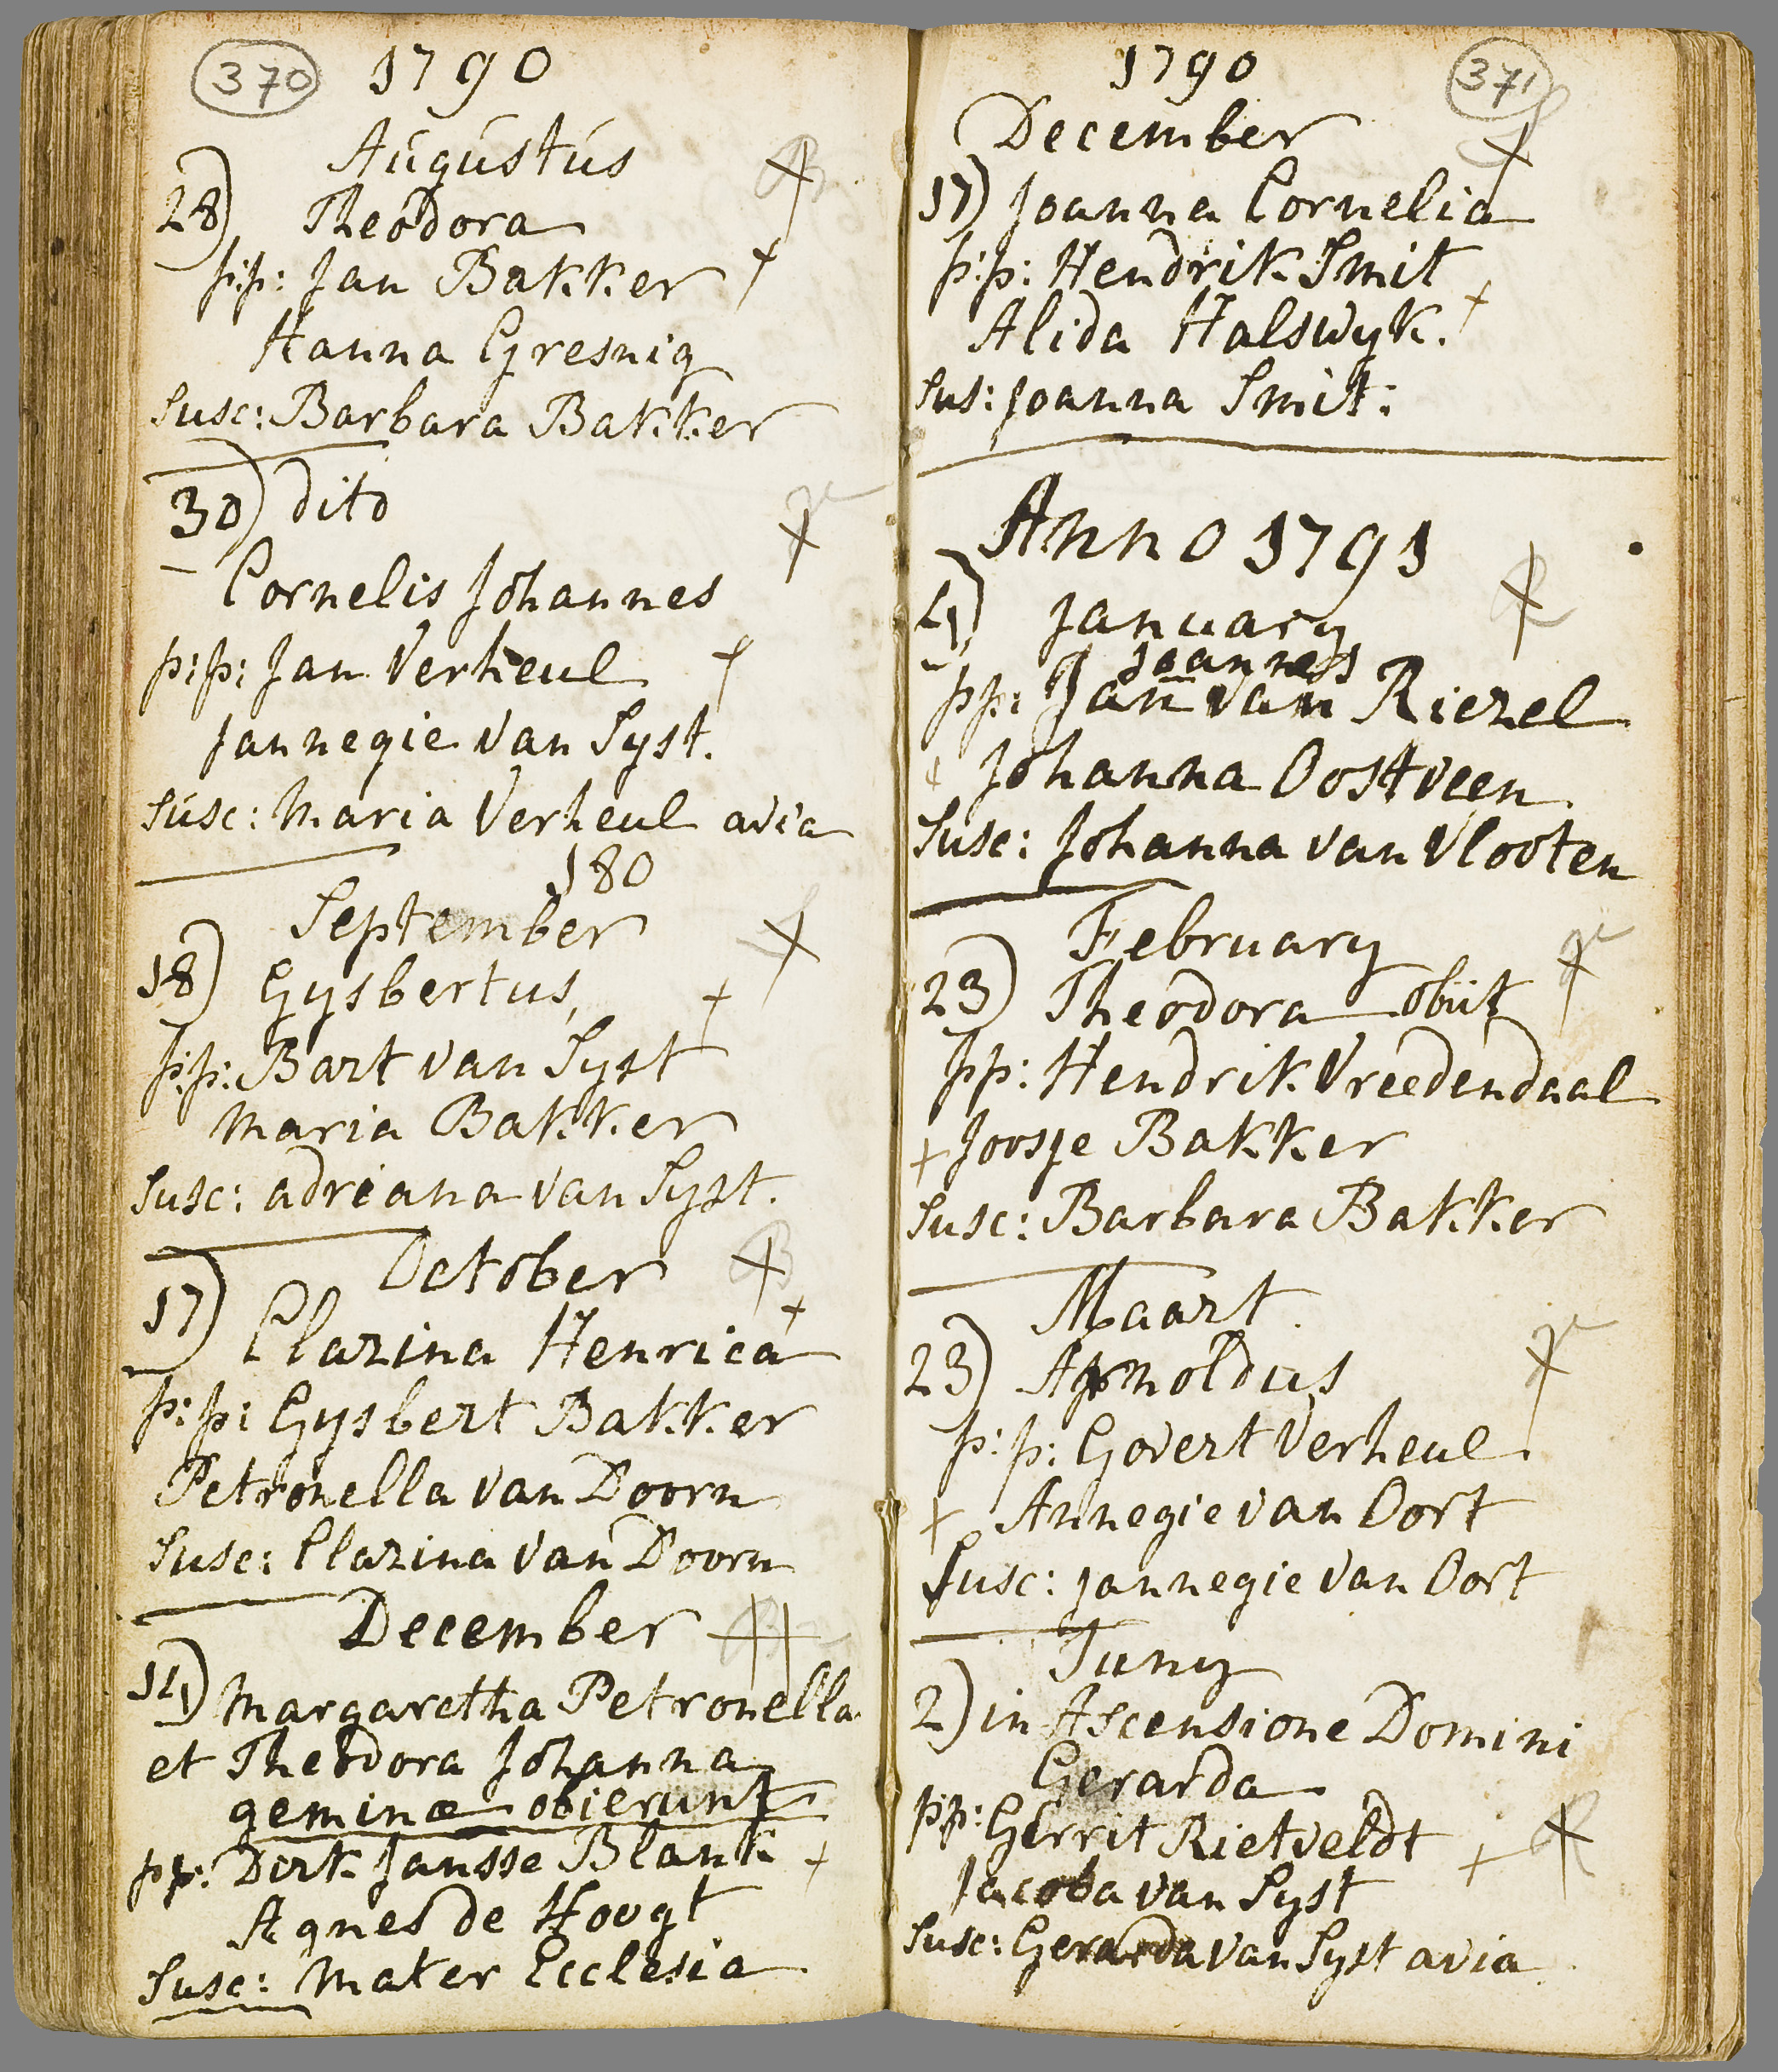 370 1790
Augústús
28) Theodora
p:p: Jan Bakker
Hanna Gresnig
Susc: Barbara Bakker
30) dito
Cornelis Johannes
p:p: Jan Verheul
Jannegie van Syst.
Súsc: Maria Verheul avia
180
September
18) Gysbertus
p:p: Bart van Syst
Maria Bakker
Susc: adriana van Syst.
October
17) Clazina Henrica
p:p: Gysbert Bakker
Petronella van Doorn
Susc: Clazina van Doorn
December
14) Margaretha Petronella
et Theodora Johanna
geminæ obierunt
pp: Dirk Jansse Blank
Agnes de Hoogt
Susc: Mater Ecclesia
1790 371
December
17) Joanna Cornelia
p:p: Hendrik Smit
Alida Halswyk.
Sus: Joanna Smit:
Anno 1791
4) January
Joannes
pp: Jan van Riezel
Johanna Oostveen
Susc: Johanna van Vlooten
February
23) Theodora obiit
pp: Hendrik Vreedendaal
Joosje Bakker
Susc: Barbara Bakker
Maart
23) Arnoldus
p:p: Govert Verheul
Annegie van Oort
Susc: Jannegie van Oort
Juny
2) in Ascensione Domini
Gerarda
p:p: Gerrit Rietveldt
Jacoba van Syst
Susc: Gerarda van Syst avia